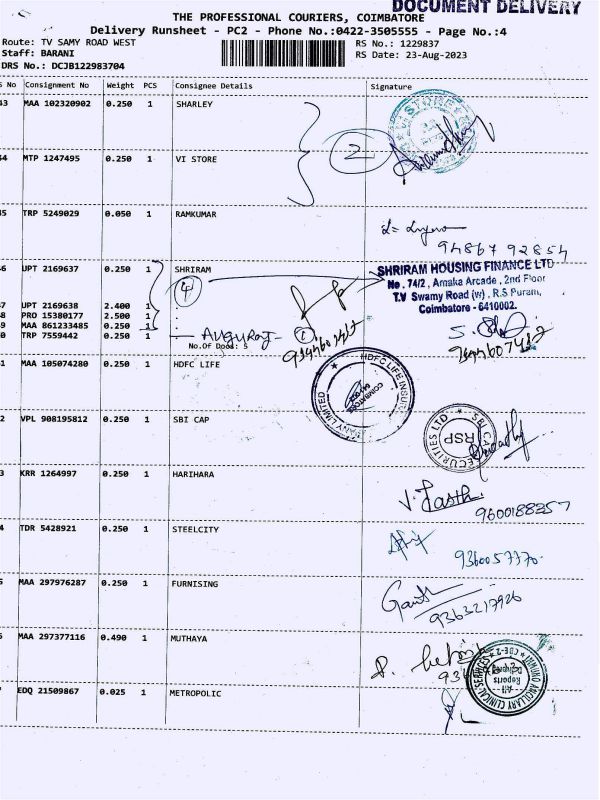 DOCUMENT DELIVERY
THE PROFESSIONAL COURIERS, COIMBATORE
Delivery Runsheet - PC2 - Phone No.:0422-3505555 - Page No.:4
Route: TV SAMY ROAD WEST
Staff: BARANI
DRS No.: DCJB122983704
RS No.: 1229837
RS Date: 23-Aug-2023
S No Consignment No Weight PCS Consignee Details Signature
43 MAA 102320902 0.250 1 SHARLEY
2
44 MTP 1247495 0.250 1 VI STORE
45 TRP 5249029 0.050 1 RAMKUMAR
94867 92854
46 UPT 2169637 0.250 1 SHRIRAM
4
SHRIRAM HOUSING FINANCE LTD
No. 74/2, Amaka Arcade, 2nd Floor
T.V Swamy Road (w), R.S Puram,
Coimbatore - 6410002.
47 UPT 2169638 2.400 1 .
48 PRO 15380177 2.500 1 .
49 MAA 861233485 0.250 1 .
50 TRP 7559442 0.250 1 .
No.Of Docs: 5
1
51 MAA 105074280 0.250 1 HDFC LIFE
HDFC LIFE INSU
PANY LIMITED
COIMBATORE
52 VPL 908195812 0.250 1 SBI CAP
SBI CAP SECURITIES LTD
RSP
53 KRR 1264997 0.250 1 HARIHARA
9600188357
54 TDR 5428921 0.250 1 STEELCITY
9360057370
55 MAA 297976287 0.250 1 FURNISING
9363217926
56 MAA 297377116 0.490 1 MUTHAYA
936
ANCILLARY CLINICAL SERVICES
CBE-2
All Reports
57 EDQ 21509867 0.025 1 METROPOLIC